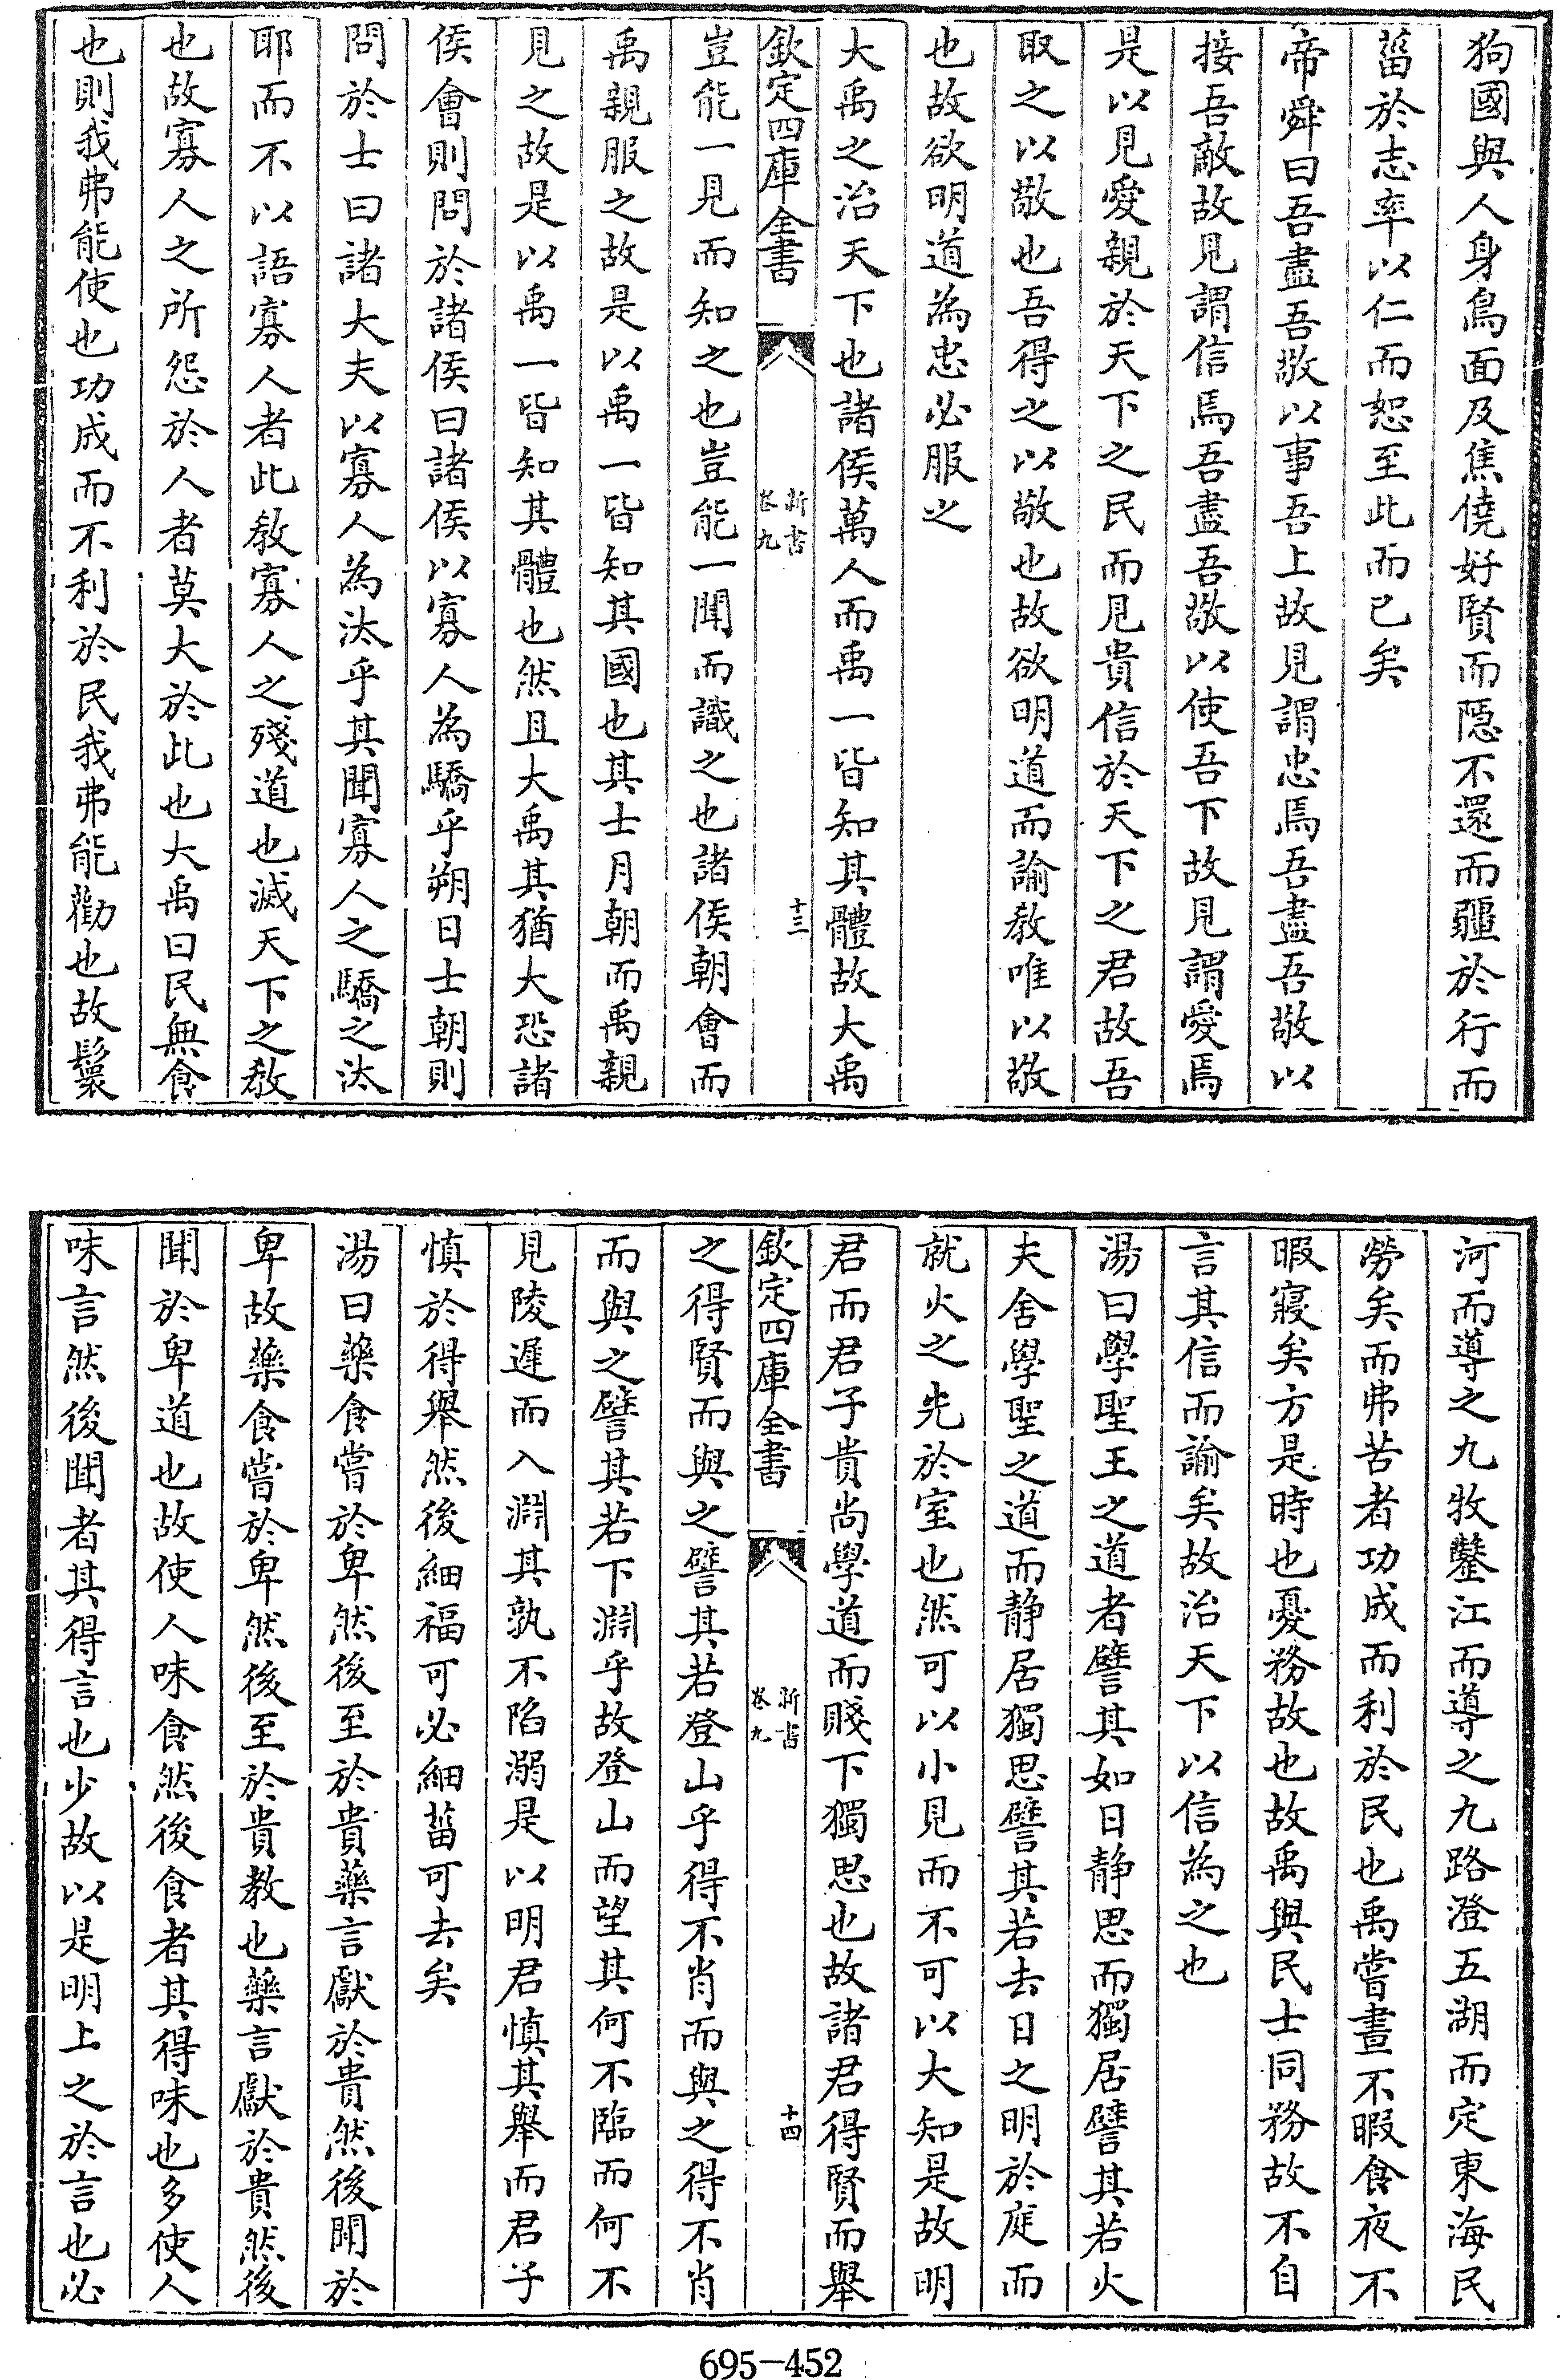 狗國與人身鳥面及焦僥好賢而隠不還而彊於行而
菑於志率以仁而恕至此而已矣
帝舜曰吾盡吾敬以事吾上故見謂忠焉吾盡吾敬以
接吾敵故見謂信焉吾盡吾敬以使吾下故見謂愛焉
是以見愛親於天下之民而見貴信於天下之君故吾
取之以敬也吾得之以敬也故欲明道而諭教唯以敬
也故欲明道為忠必服之
大禹之治天下也諸侯萬人而禹一皆知其體故大禹
欽定四庫全書
新書
卷九
十三
豈能一見而知之也豈能一聞而識之也諸侯朝會而
禹親服之故是以禹一皆知其國也其士月朝而禹親
見之故是以禹一皆知其體也然且大禹其猶大恐諸
侯會則問於諸侯曰諸侯以寡人為驕乎朔日士朝則
問於士曰諸大夫以寡人為汰乎其聞寡人之驕之汰
耶而不以語寡人者此教寡人之殘道也滅天下之教
也故寡人之所怨於人者莫大於此也大禹曰民無食
也則我弗能使也功成而不利於民我弗能勸也故鬟
河而導之九牧鑿江而導之九路澄五湖而定東海民
勞矣而弗苦者功成而利於民也禹嘗晝不暇食夜不
暇寢矣方是時也憂務故也故禹與民士同務故不自
言其信而諭矣故治天下以信為之也
湯曰學聖王之道者譬其如日靜思而獨居譬其若火
夫舍學聖之道而静居獨思譬其若去日之明於庭而
就火之先於室也然可以小見而不可以大知是故明
君而君子貴尚學道而賤下獨思也故諸君得賢而舉
欽定四庫全書
新書
卷九
十四
之得賢而與之譬其若登山乎得不肖而與之得不肖
而與之譬其若下淵乎故登山而望其何不臨而何不
見陵遲而入淵其孰不陷溺是以明君慎其舉而君子
慎於得舉然後細福可必細菑可去矣
湯曰藥食嘗於卑然後至於貴藥言獻於貴然後聞於
卑故藥食嘗於卑然後至於貴教也藥言獻於貴然後
聞於卑道也故使人味食然後食者其得味也多使人
味言然後聞者其得言也少故以是明上之於言也必
695-452